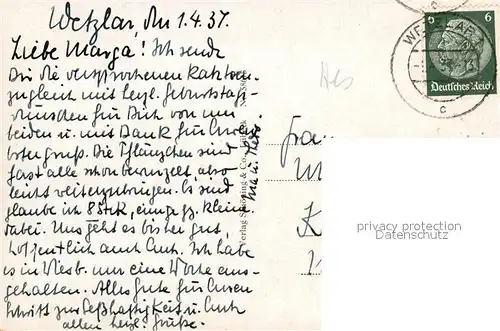 Wetzlar, den 1.4.37.
Liebe Marga! Ich sende
Dir die versprochenen Kakteen
zugleich mit herzl. Geburtstags-
wünschen für Dich von uns
beiden u. mit Dank für Euren
Ostergruß. Die Pflänzchen sind
fast alle schon bewurzelt, also
leicht weiterzubringen. Es sind
glaube ich 8 Stck, einige gz. kleine
dabei. Uns geht es bisher gut,
hoffentlich auch Euch. Ich habe
es in Wiesb. nur eine Woche aus-
gehalten. Alles Gute für Euren
Schritt zur Seßhaftigkeit u. Euch
allen herzl. Grüße.
Verlag Schöning & Co., Lübeck
Frau
6 6
Deutsches Reich
WETZLAR
c
privacy protection
Datenschutz